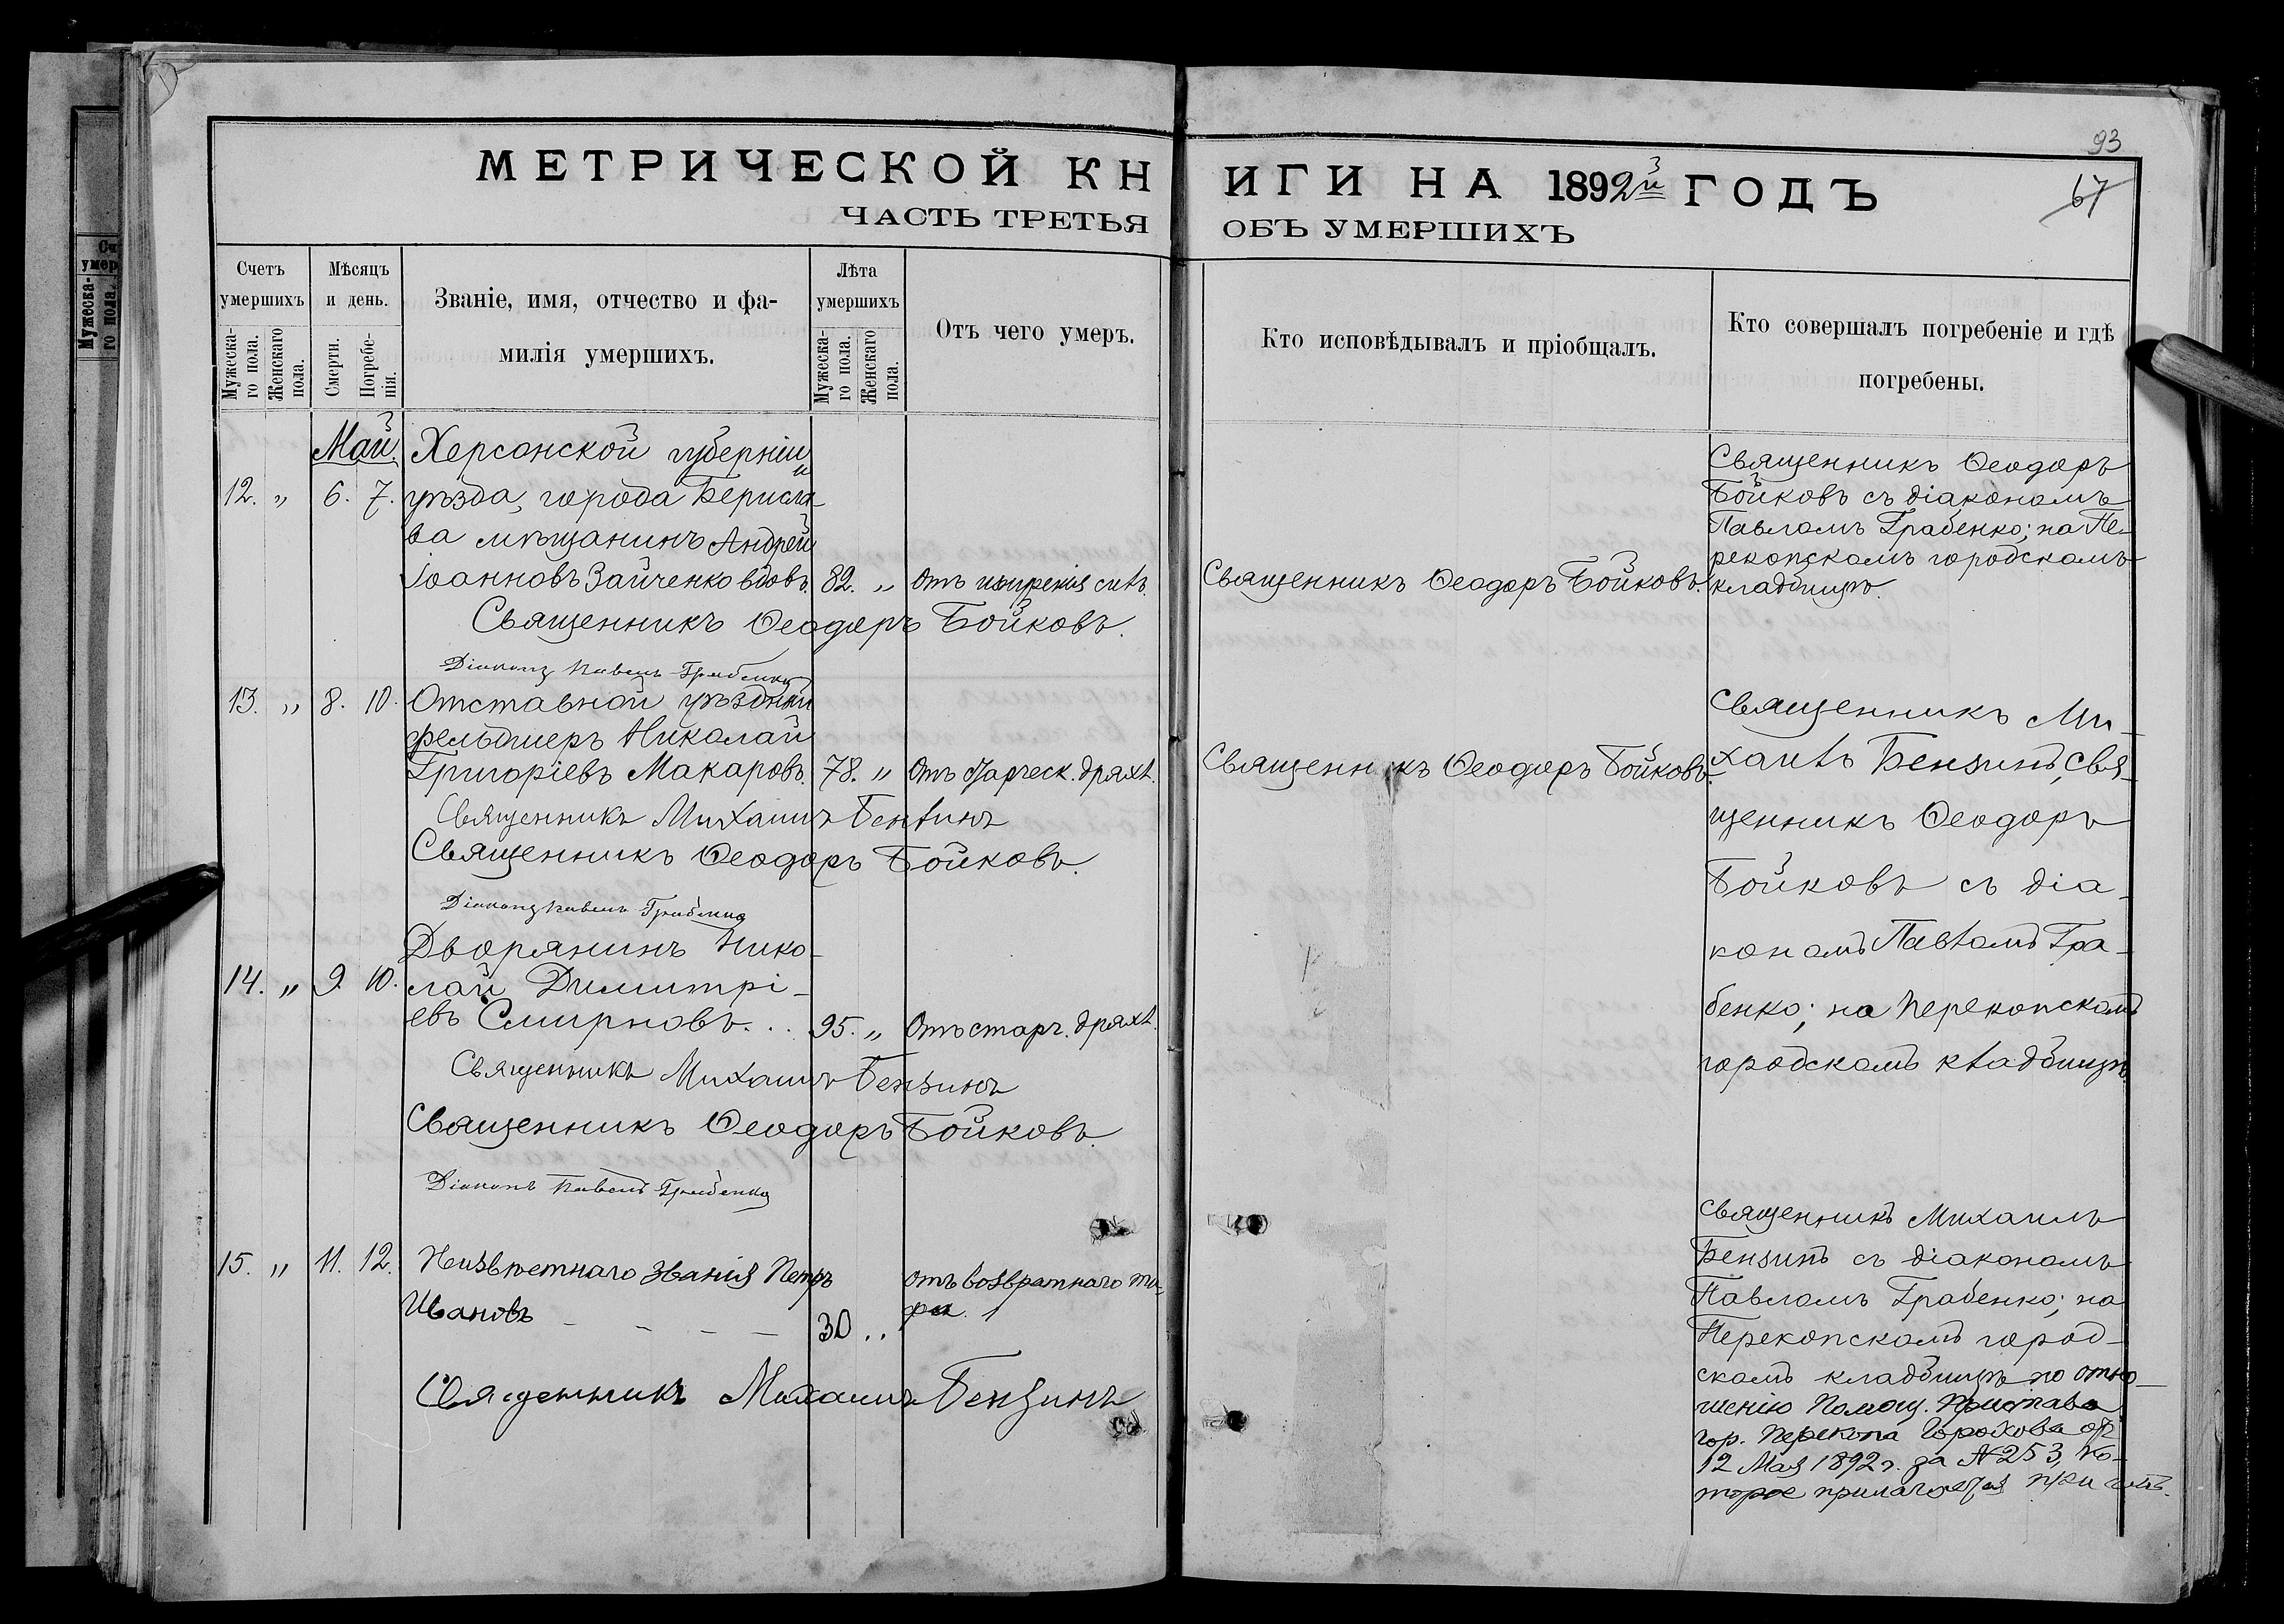 93
67
МЕТРИЧЕСКОЙ КНИГИ НА 1892й ГОДЪ
ЧАСТЬ ТРЕТЬЯ ОБЪ УМЕРШИХЪ
Счетъ умершихъ
Мужеска-го пола.
Женскаго пола.
Мѣсяцъ и день.
Смерти.
Погребе-нія.
Званіе, имя, отчество и фа-
милія умершихъ.
Лѣта умершихъ
Мужеска-го пола.
Женскаго пола.
Отъ чего умеръ.
Кто исповѣдывалъ и пріобщалъ.
Кто совершалъ погребеніе и гдѣ
погребены.
Май.
12. „ 6. 7.
Херсонской губерніи
и
уѣзда, города Берисла-
ва мѣщанинъ Андрей
Іоанновъ Зайченко вдовъ.
82. „
Отъ
Священникъ Ѳеодоръ Бойковъ.
Священникъ Ѳеодоръ
Бойковъ съ діакономъ
Павломъ Грабенко; на Пе-
рекопскомъ городскомъ
кладбищѣ.
Священникъ Ѳеодоръ Бойковъ.
Діаконъ Павелъ Грабенко
13. „ 8. 10.
Отставной уѣздный
фельдшеръ Николай
Григоріевъ Макаровъ.
78. „
Отъ старческ. дряхл.
Священникъ Ѳеодоръ Бойковъ.
Священникъ Ми-
хаилъ Бензинъ, свя-
щенникъ Ѳеодоръ
Бойковъ съ діа-
кономъ Павломъ Гра-
бенко; на Перекопскомъ
городскомъ кладбищѣ.
Священникъ Михаилъ Бензинъ
Священникъ Ѳеодоръ Бойковъ.
Діаконъ Павелъ Грабенко
14. „ 9. 10.
Дворянинъ Нико-
лай Димитрі-
евъ Смирновъ. . .
95. „
Отъ старч. дряхл.
Священникъ Михаилъ Бензинъ
Священникъ Ѳеодоръ Бойковъ.
Діаконъ Павелъ Грабенко
15. „ 11. 12.
Неизвѣстнаго званія Петръ
Ивановъ - - - -
30 „
отъ возвратнаго ти-
фа.
Священникъ Михаилъ
Бензинъ съ діакономъ
Павломъ Грабенко; на
Перекопскомъ город-
скомъ кладбищѣ по отно-
шенію Помощ. Пристава
гор. Перекопа Горохова отъ
12 Мая 1892 г. за № 253, ко-
торое прилагается при
Священникъ Михаилъ Бензинъ